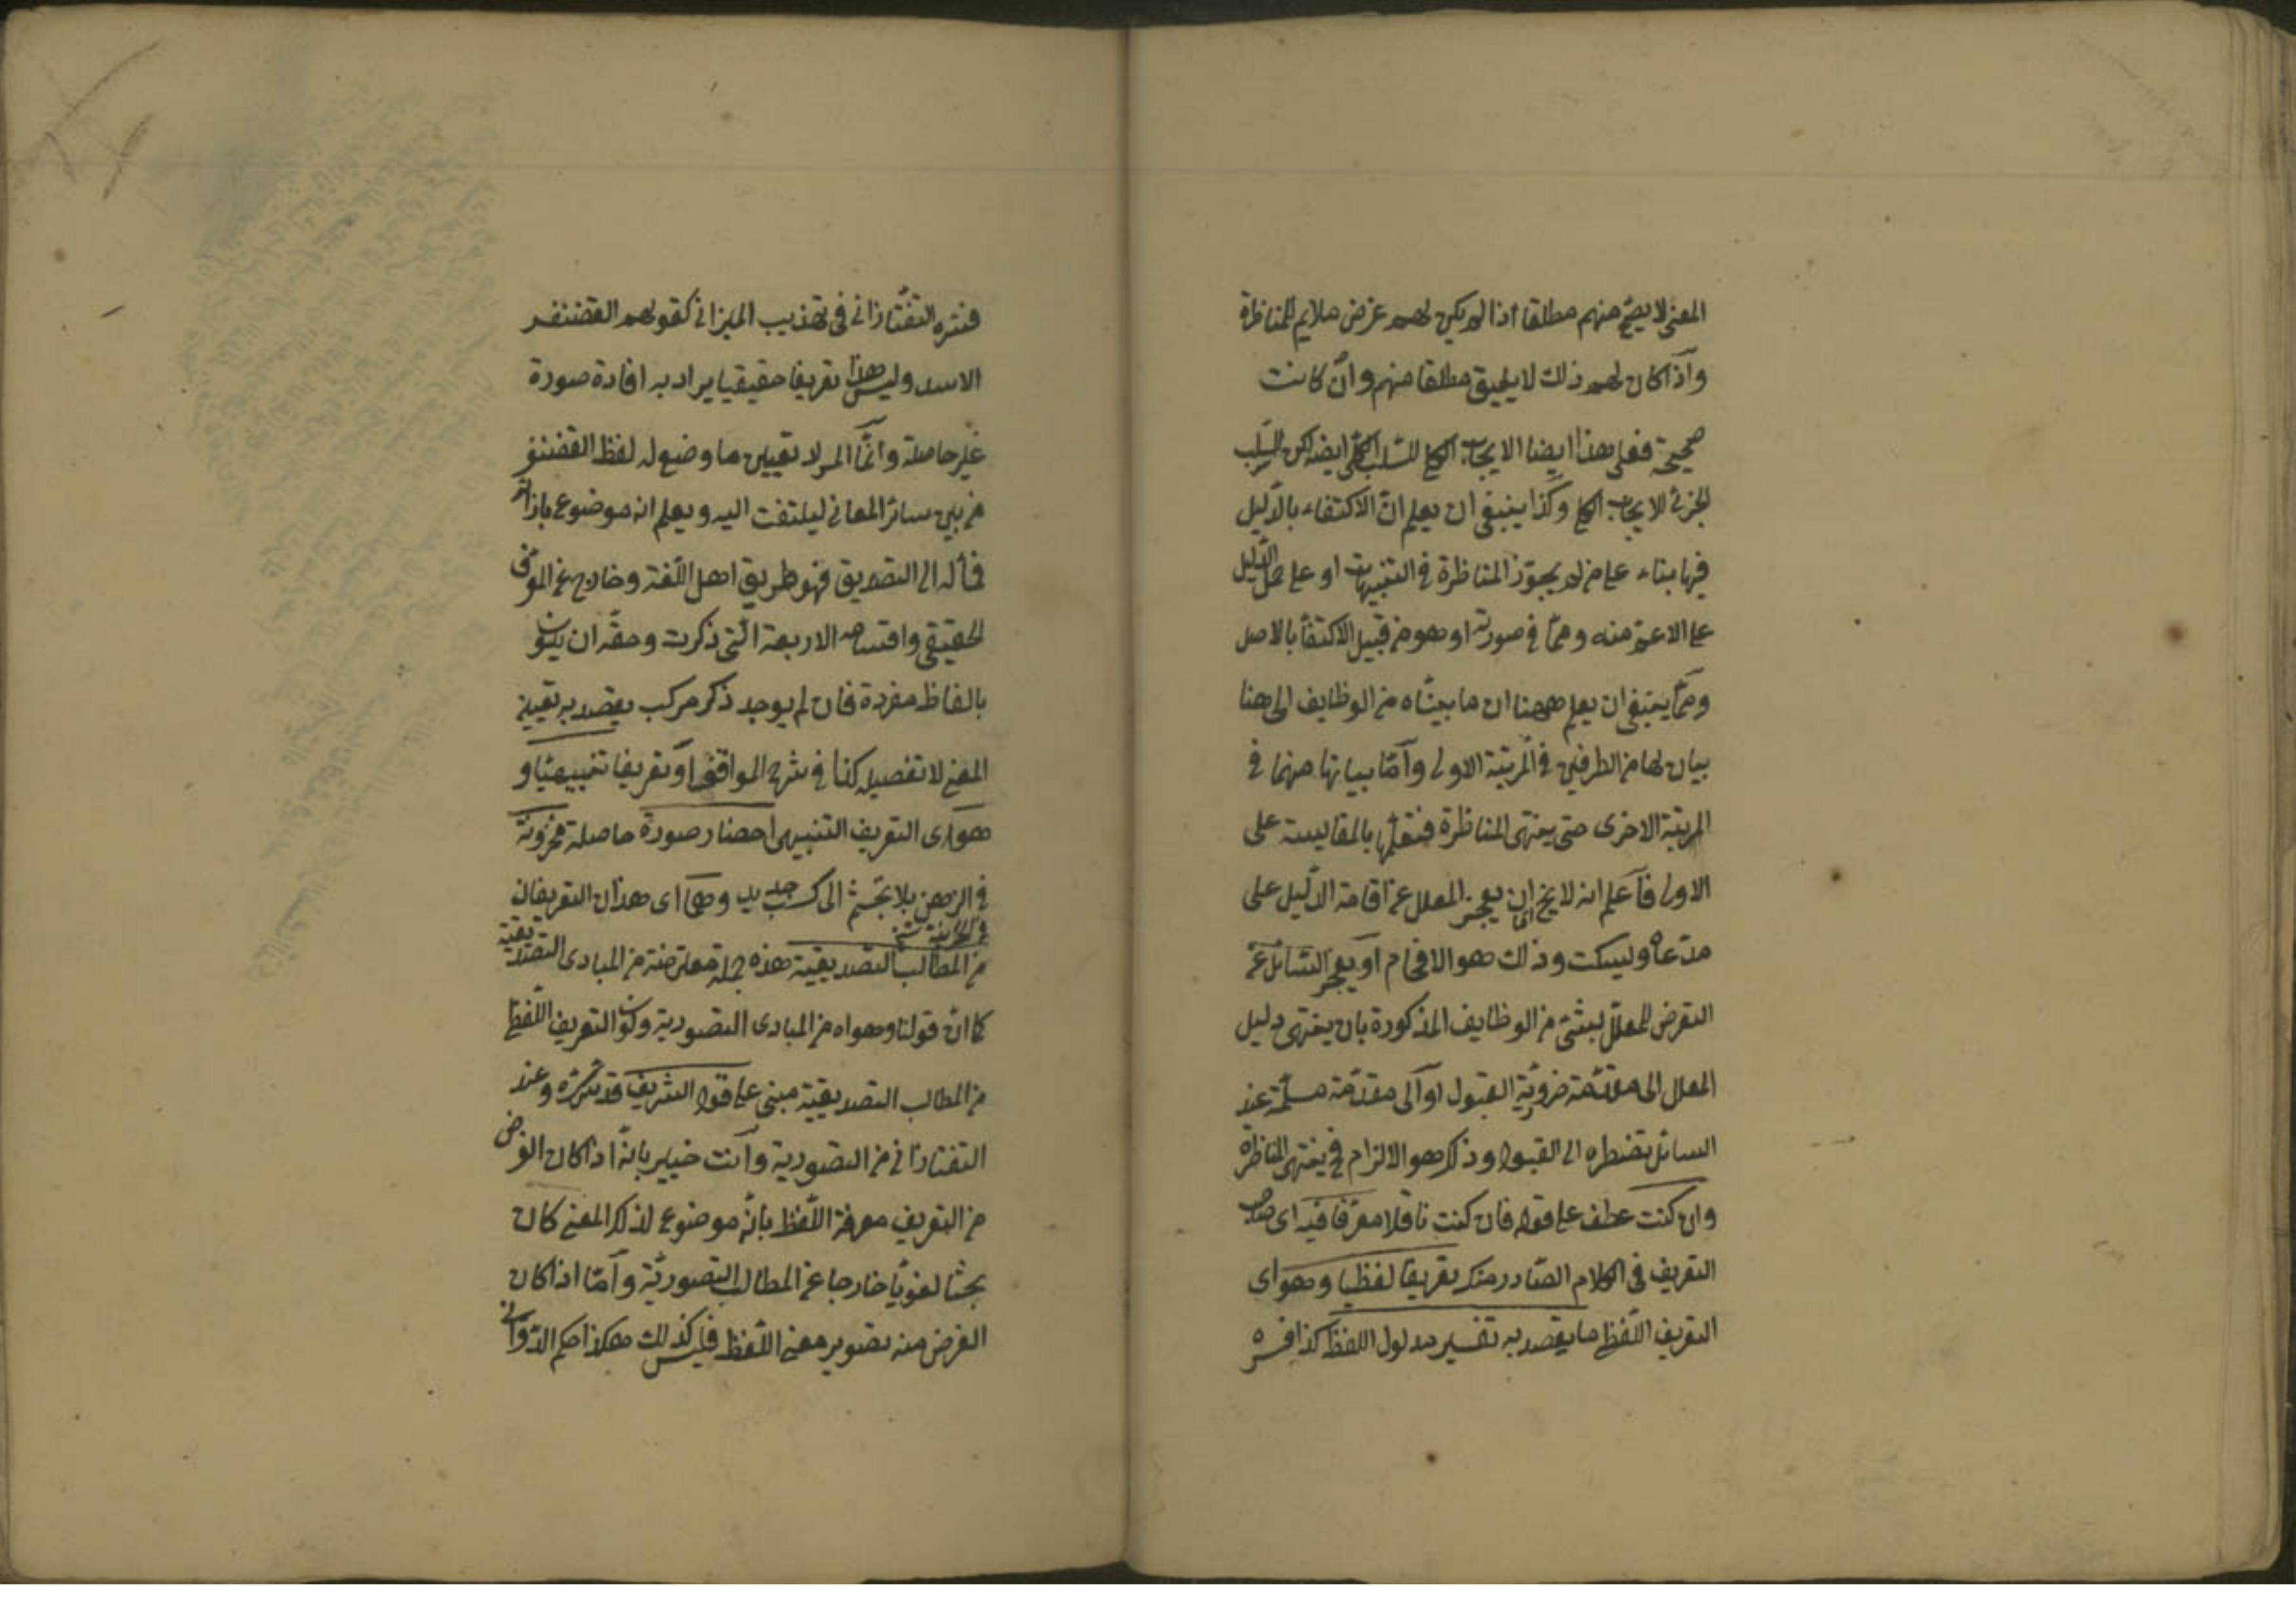 المعنى لا يصح منهم مطلقا اذا لم يكن لهم غرض ملايم للمناظرة
واذا كان لهم ذلك لا يليق مطلقا منهم وان كانت
صحيحة فعلى هذا ايضا الايجاب الكلي للسلب الكلي ايضا لكن السلب
الجزئى للايجاب الكلي وكذا ينبغى ان يعلم ان الاكتفاء بالدليل
فيها بناء على من لم يجوز المناظرة فى التنبيهات او على حمل الدليل
على الاعم منه ومما فى صورته او هو من قبيل الاكتفا بالاصل
ومما ينبغى ان يعلم ههنا ان ما بيناه من الوظايف الى هنا
بيان لها من الطرفين فى المرتبة الاولى وأما بيانها منهما فى
المرتبة الاخرى حتى ينتهى المناظرة فتعلمها بالمقايسة على
الاولى فاعلم انه لا يخ اما ان يعجز المعلل عن اقامة الدليل على
مدعاه وليسكت وذلك هو الافحام او يعجز السائل عن
التعرض للمعلل بشئ من الوظايف المذكورة بان ينتهى دليل
المعلل الى مقدمة ضرورية القبول او الى مقدمة مسلمة عند
السائل تضطره الى القبول وذلك هو الالزام فح ينتهى المناظرة
وان كنت عطف على قوله فان كنت ناقلا معرفا فيه اى صاحب
التعريف فى الكلام الصادر منك تعريفا لفظيا وهو اى
التعريف اللفظى ما يقصد به تفسير مدلول اللفظ كذا فسره
فسره التفتازانى فى تهذيب الميزانى كقولهم الغضنفر
الاسد وليس هذا تعريفا حقيقيا يراد به افادة صورة
غير حاصلة وانما المراد تعيين ما وضع له لفظ الغضنفر
من بين سائر المعانى ليلتفت اليه ويعلم انه موضوع بازائه
فمأله الى التصديق فهو طريق اهل اللغة وخارج عن المعرف
الحقيقى واقسامه الاربعة التى ذكرت وحقه ان يكون
بالفاظ مفردة فان لم يوجد ذكر مركب يقصد به تعيين
المعنى لا تفصيله كذا فى شرح المواقف او تعريفا تنبيهيا و
هو اى التعريف التنبيهى احضار صورة حاصلة مخزونة
فى الذهن بلا تجشم الى كسب جديد وهما اى هذان التعريفان
من المطالب التصديقية هذه جملة معترضة من المبادى التصديقية
كما ان قولنا وهو اه من المبادى التصورية وكون التعريف اللفظى
من المطالب التصديقية مبنى على قول الشريف قدس سره وعند
التفتازانى من التصورية وانت خبير بانه اذا كان الغرض
من التعريف معرفة اللفظ بانه موضوع لذلك المعنى كان
بحثا لغويا خارجا عن المطالب التصورية وأما اذا كان
الغرض منه تصوير معنى اللفظ فليس كذلك هكذا حكم الدوانى